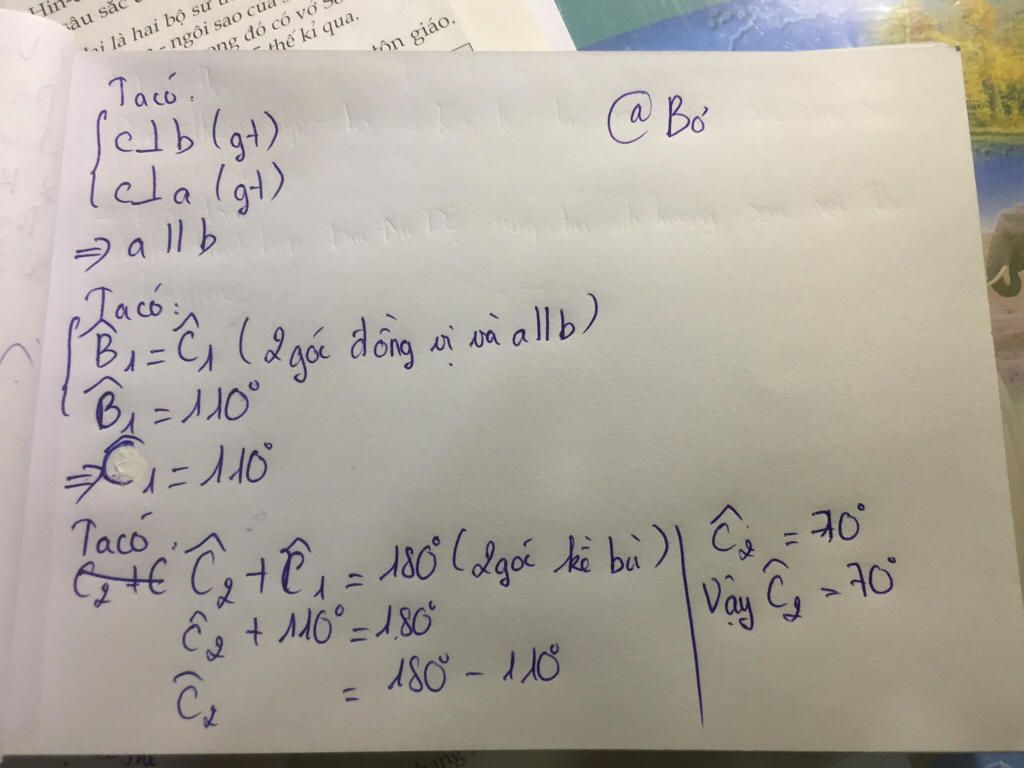 Hin-
sâu sắc
lại là hai bộ sử
- ngôi sao của
ong đó có vở
thế kỉ qua.
tôn giáo.
Ta có:
c⊥b (gt)
c⊥a (gt)
⇒ a // b
@ Bơ
Ta có:
B̂₁ = Ĉ₁ (2 góc đồng vị và a // b)
B̂₁ = 110°
⇒ Ĉ₁ = 110°
Ta có:
Ĉ₂ + Ĉ₁ = 180° (2 góc kề bù)
Ĉ₂ + 110° = 180°
Ĉ₂ = 180° - 110°
Ĉ₂ = 70°
Vậy Ĉ₂ = 70°